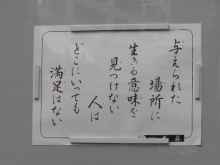 与えられた
場所に
生きる意味を
見つけない
人は
どこにいっても
満足はない